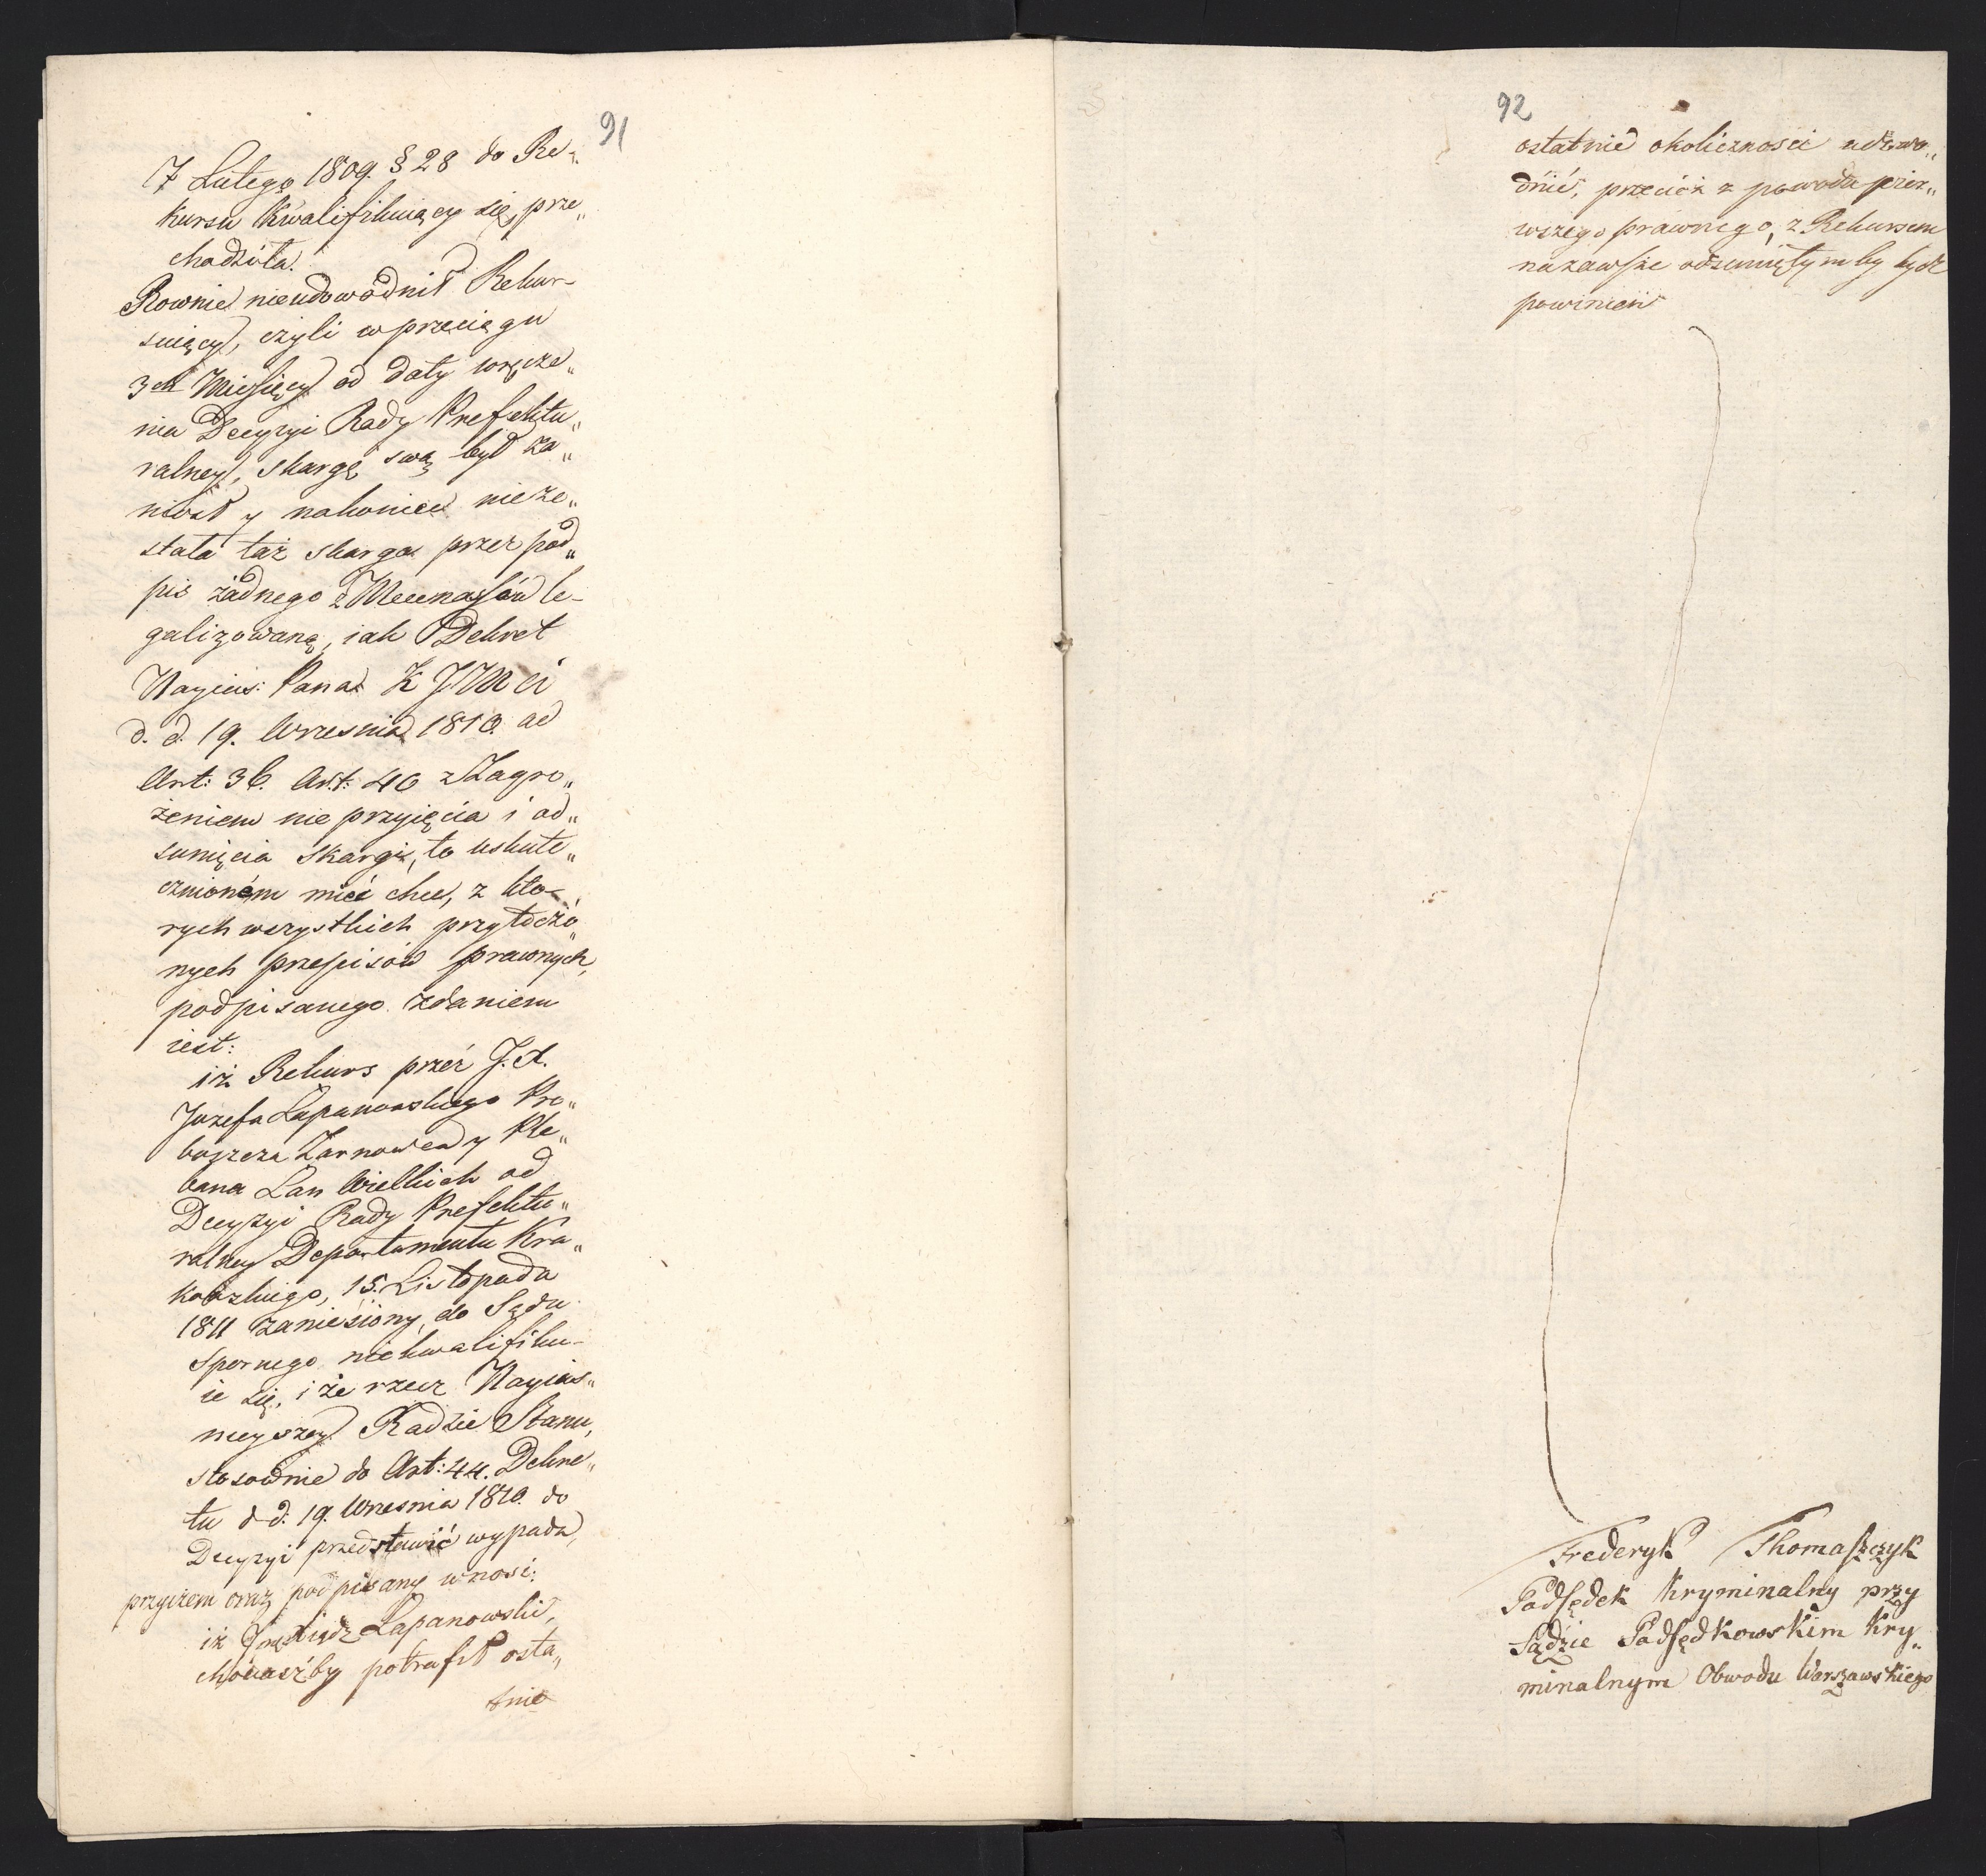 91
7 Lutego 1809. § 28 do Re„
kursu kwalifikuiący się, prze„
chodziła.
Rownie nieudowodnił Rekur-
suiący, czyli w przeciągu
3ch Miesięcy od daty wręcze„
nia Decyzyi Rady Prefektu„
ralney, skargę swą był za„
niosł y nakoniec nieze„
stała taż skarga przez pod„
pis żadnego z Mecenasów le-
galizowaną, iak Dekret
Nayias: Pana K JMci
d. d. 19. Wrzesnia 1810 ad
Art: 36. Art: 40 z Zagro„
żeniem nie przyięcia i od„
sunięcia skargi, to uskute„
cznioném mieć chce, z kto-
rych wszystkich przytoczo„
nych przepisów prawnych,
podpisanego zdaniem
iest:
iż Rekurs przez J. X.
Jozefa Łapanowskiego Pro„
boszcza Żarnowca y Ple„
bana Łan Wielkich od
Decyzyi Rady Prefektu„
ralney Departamentu Kra„
kowskiego, 15. Listopada
1811 zaniesiony, do Sądu
Spornego niekwalifiku-
ie się, i że rzecz Nayias„
nieyszey Radzie Stanu,
stosownie do Art: 44. Dekre„
tu d. d. 19. Wrzesnia 1810. do
Decyzyi przedstawić wypada,
przyczem oraz podpisany wnosi:
iż Xiądz Łapanowski,
chociaszby potrafił osta„
tnie
92
ostatnie okolicznosci udowo„
dnić, przecież z powodu pier„
wszego prawnego, z Rekursem
nazawsze odsuniętym by bydz
powinien
Frederyk Thomaszczyk
Podsędek Kryminalny przy
Sądzie Podsędkowskim Kry„
minalnym Obwodu Warszawskiego